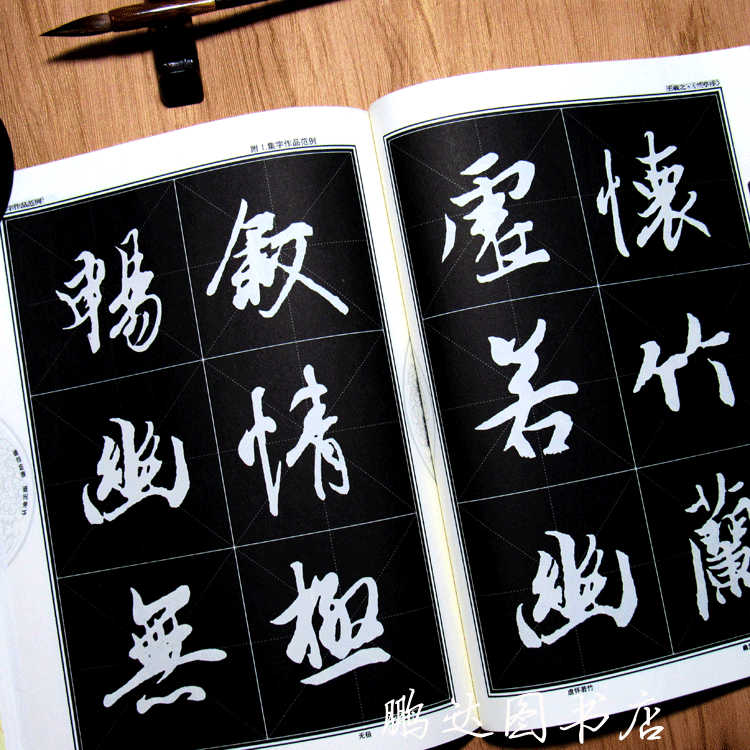 字作品范例
附1集字作品范例
暢敘
幽情
無極
无极
王羲之·《兰亭序》
虛懷
若竹
幽蘭
虚怀若竹
鹏达图书店